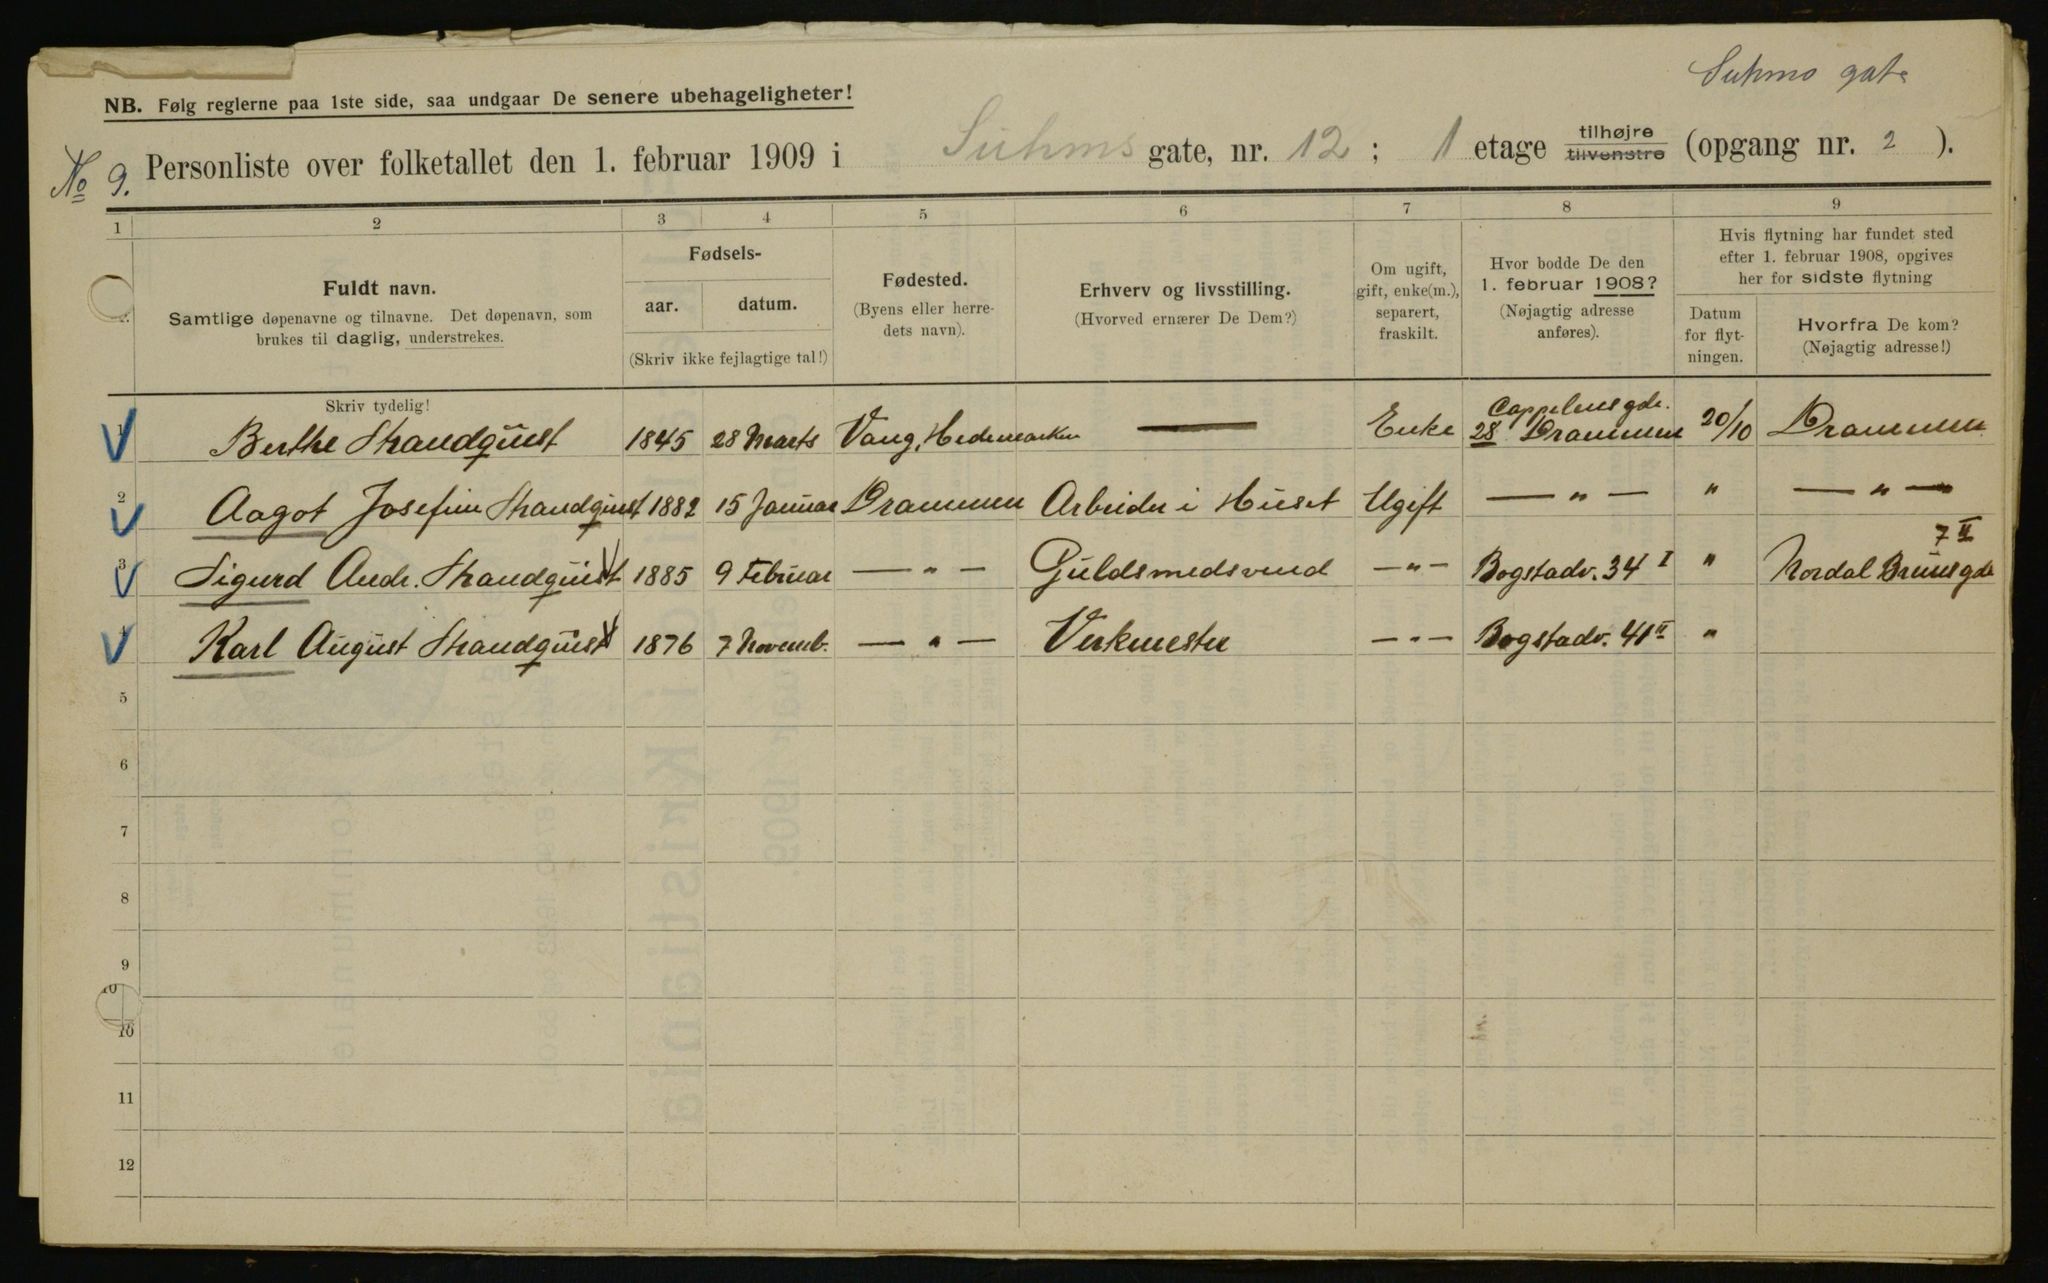 Suhms gate
NB. Følg reglerne paa 1ste side, saa undgaar De senere ubehageligheter!
No 9. Personliste over folketallet den 1. februar 1909 i Suhms gate, nr. 12 ; 1 etage tilhøjre tilvenstre (opgang nr. 2 ).
1 2 3 4 5 6 7 8 9
Fuldt navn.
Samtlige døpenavne og tilnavne. Det døpenavn, som
brukes til daglig, understrekes.
Skriv tydelig!
Fødsels-
aar. datum.
(Skriv ikke fejlagtige tal!)
Fødested.
(Byens eller herre-
dets navn).
Erhverv og livsstilling.
(Hvorved ernærer De Dem?)
Om ugift,
gift, enke(m.),
separert,
fraskilt.
Hvor bodde De den
1. februar 1908?
(Nøjagtig adresse
anføres).
Hvis flytning har fundet sted
efter 1. februar 1908, opgives
her for sidste flytning
Datum
for flyt-
ningen.
Hvorfra De kom?
(Nøjagtig adresse!)
1 Berthe Strandquist 1845 28 Marts Vang, Hedemarken — Enke Cappelens gde. 28 Drammen 20/10 Drammen
2 Aagot Josefine Strandquist 1882 15 Januar Drammen Arbeider i Huset Ugift — " — " — " —
3 Sigurd Andr. Strandquist 1885 9 Februar — " — Guldsmedsvend — " — Bogstadv. 34 I " Nordal Bruns gde 7 II
4 Karl August Strandquist 1876 7 Novemb. — " — Verkmester — " — Bogstadv. 41 II "
5
6
7
8
9
10
10
11
12